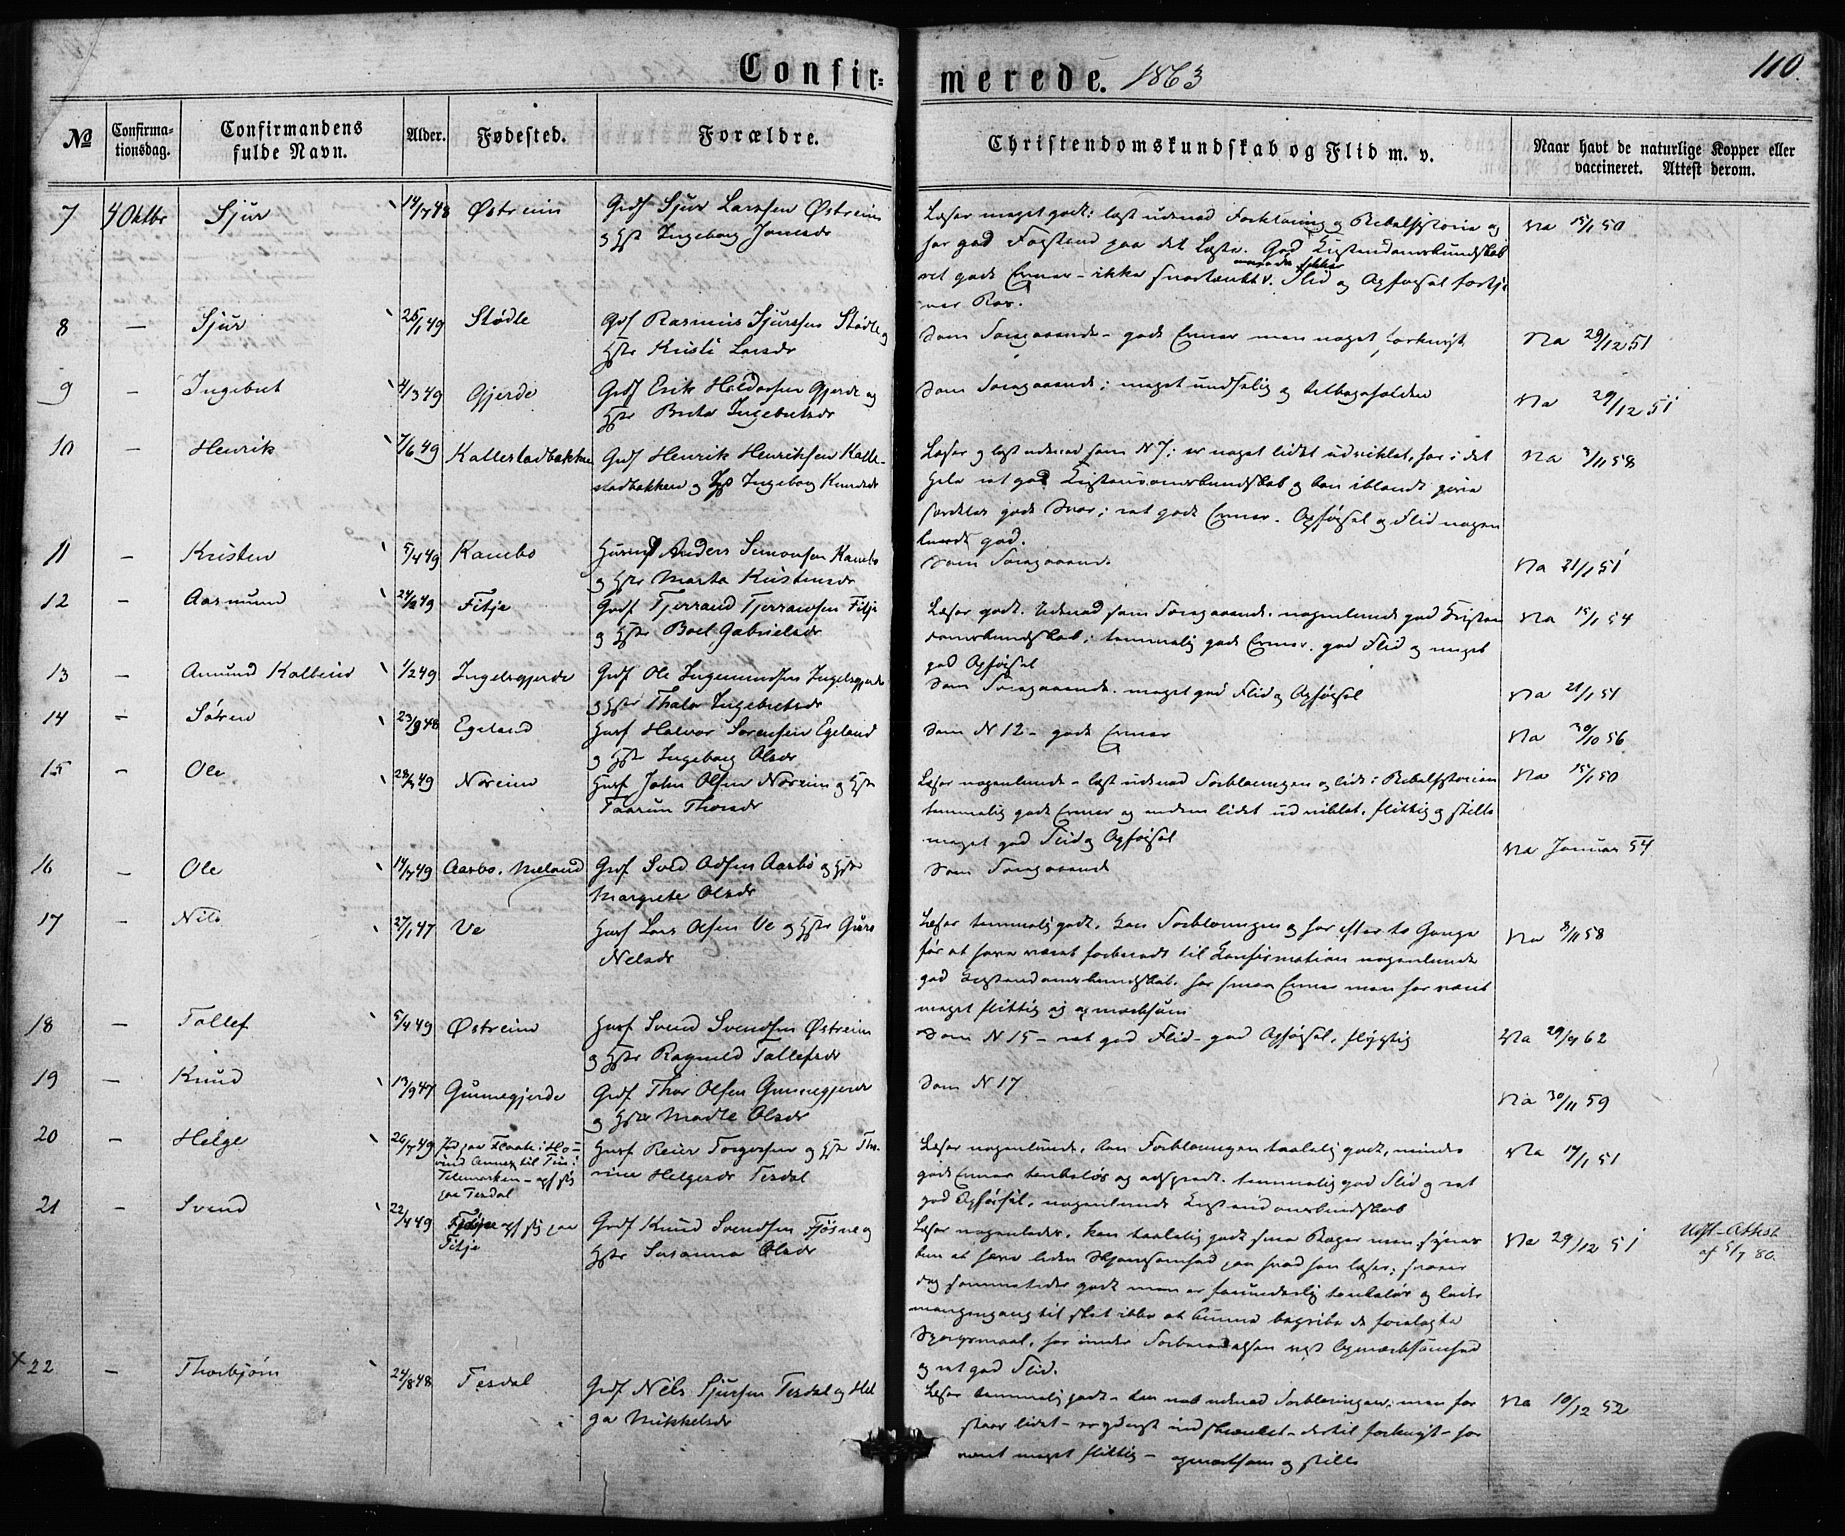 Confir=
merede. 1863
110.
No
Confirma-
tionsdag.
Confirmandens
fulde Navn.
Alder.
Fødested.
Forældre.
Christendomskundskab og Flid m. v.
Naar havt de naturlige Kopper eller
vaccineret. Attest derom.
7 4 Oktbr Sjur 14/7 48 Østreim Grdf Sjur Larssen Østreim
og Hst Ingeborg Jonsdr
Læser meget godt; læst udenad Forklaring og Bibelhistorie og
har god Forstand paa det Læste. God Kristendomskundskab
ret gode Evner - ikke snartænkt. Flid og Opførsel fortje
ner Ros.
Va 15/1 50
8 — Sjur 25/1 49 Stødle Grdf Rasmus Sjurssen Stødle og
Hst Kristi Larsdr
Som Foregaaende - gode Evner men noget forknyt
Va 29/12 51
9 — Ingebret 4/3 49 Gjerde Grdf Erik Heldorsen Gjerde og
Hst Brita Ingebretsdr
Som Foregaaende; meget undselig og tilbageholden
Va 29/12 51
10 — Henrik 7/6 49 Kallestadbakken Grdf Henrik Henriksen Kalle-
stadbakken og Hst Ingeborg Knudsdr
Læser og læst udenad som N 7; er noget lidet udviklet, har i det
Hele ret god Kristendomskundskab og kan iblandt give
særdeles gode Svar; ret gode Evner. Opførsel og Flid nogen
lunde god.
Va 3/11 58
11 — Kristen 5/4 49 Kambo Husmd Anders Simonsen Kambo
og Hst Marta Kristensdr
Som Foregaaende.
Va 21/1 51
12 — Aasmund 24/2 49 Fitje Grdf Tjerrand Tjerransen Fitje
og Hst Boel Gabrielsdr
Læser godt. Udenad som Foregaaende. nogenlunde god Kristen
domskundskab; temmelig gode Evner. god Flid og meget
god Opførsel
Va 15/1 54
13 — Amund Kolbein 1/2 49 Ingelsgjerde Grdf Ole Ingemundsen Ingelsgjerde
og Hst Thala Ingebretsdr
Som Foregaaende. meget god Flid og Opførsel
Va 21/1 51
14 — Søren 23/9 48 Egeland Husf Halvor Sørensen Egeland
og Hst Ingeborg Olsdr
Som N 12 - gode Evner
Va 30/10 56
15 — Ole 28/2 49 Noreim Husf John Olsen Noreim og Hst
Taarun Thorsdr
Læser nogenlunde - læst udenad Forklaringen og lidt i Bibelhistorien
temmelig gode Evner og endnu lidet udviklet, flittig og stille
meget god Flid og Opførsel
Va 15/1 50
16 — Ole 14/7 49 Aarbø. Meland Grdf Sveld Adsen Aarbø og Hst
Margrete Olsdr
Som Foregaaende
Va Januar 54
17 — Nils 27/1 47 Ve Husf Lars Olsen Ve og Hst Guro
Nelsdr
Læser temmelig godt. kan Forklaringen og har efter to Gange
før at have været forberedt til Konfirmation nogenlunde
god Kristendomskundskab. har smaa Evner men har været
meget flittig og opmærksom
Va 8/11 58
18 — Tollef 5/4 49 Østreim Husf Svend Svendsen Østreim
og Hst Ragnild Tollefsdr
Som N 15 - ret god Flid - god Opførsel, flygtig
Va 29/9 62
19 — Knud 13/9 47 Gunnegjerde Grdf Thor Olsen Gunnegjerde
og Hst Madle Olsdr
Som N 17
Va 30/11 59
20 — Helge 26/7 49 Fød paa Flaate i Ho-
vind Annex til Tin i
Telemarken -
paa Tesdal
Husf Reier Torgersen og Hst Tho-
rine Helgesdr Tesdal
Læser nogenlunde. kan Forklaringen taalelig godt, mindre
gode Evner tankeløs og adspredt. temmelig god Flid og ret
god Opførsel, nogenlunde Kristendomskundskab
Va 17/1 51
21 — Svend 22/4 49 Fjøsne paa
Fitje
Grdf Knud Svendsen Fjøsne og
Hst Susanna Olsdr
Læser nogenledes, kan taalelig godt sine Bøger men synes
kun at have liden paa hvad han læser; svarer
dog sommetider godt men er forunderlig tankeløs og lader
mangengang til slet ikke at kunne begribe de forelagte
Spørgsmaal, har under Forberedelsen vist Opmærksomhed
og ret god Flid.
Va 29/12 51
Udst. Attest
af 5/7 80.
x 22 — Thorbjørn 24/8 48 Tesdal Grdf Nels Sjursen Tesdal og Hel
ga Mikkelsdr
Læser temmelig godt - kan nok udenad Forklaringen; men for
staar lidet - er yderst indskrænket - dertil forknyt - har
været meget flittig - opmærksom og stille
Va 10/12 52